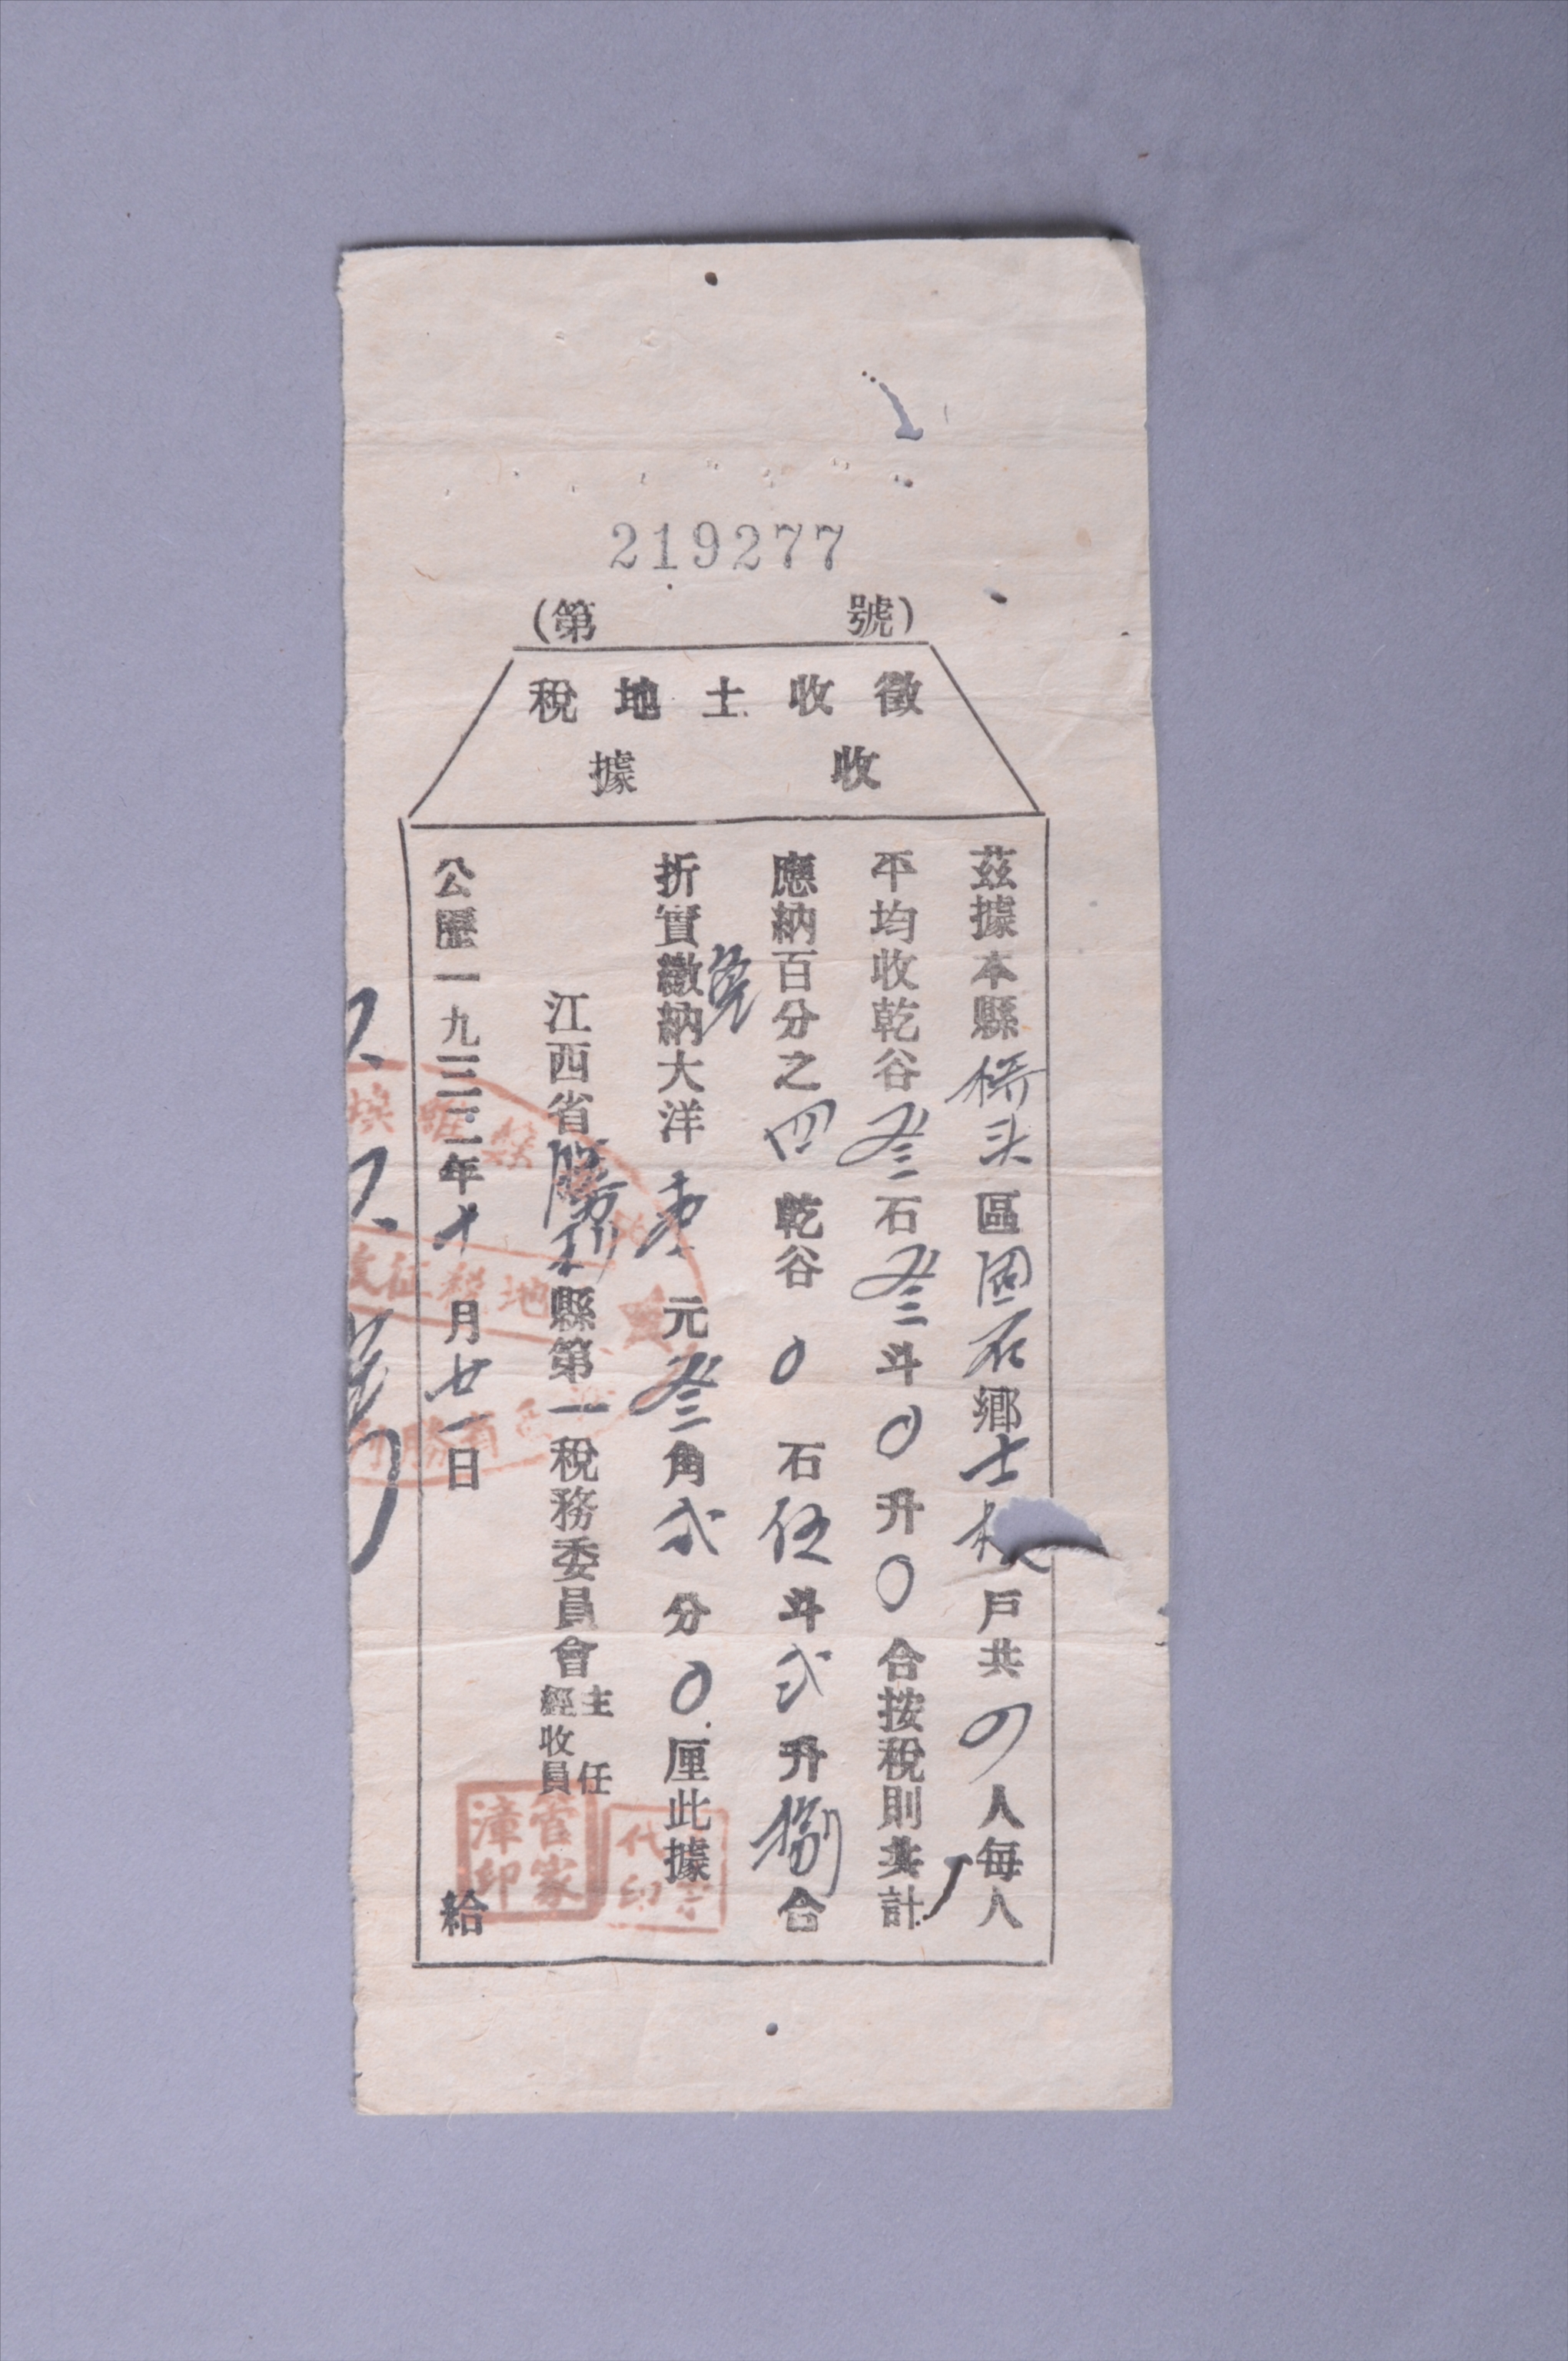 219277
(第 號)
徵收土地稅
收據
茲據本縣桥头區固石鄉士戶共四人每人
平均收乾谷叁石叁斗〇升〇合按稅則共計
應納百分之四乾谷〇石伍斗弍升捌合
免
折實繳納大洋壹元叁角弍分〇厘此據
江西省勝利縣第一稅務委員會主任經收員
管家漳印
代印
公歷一九三三年十月廿一日 給